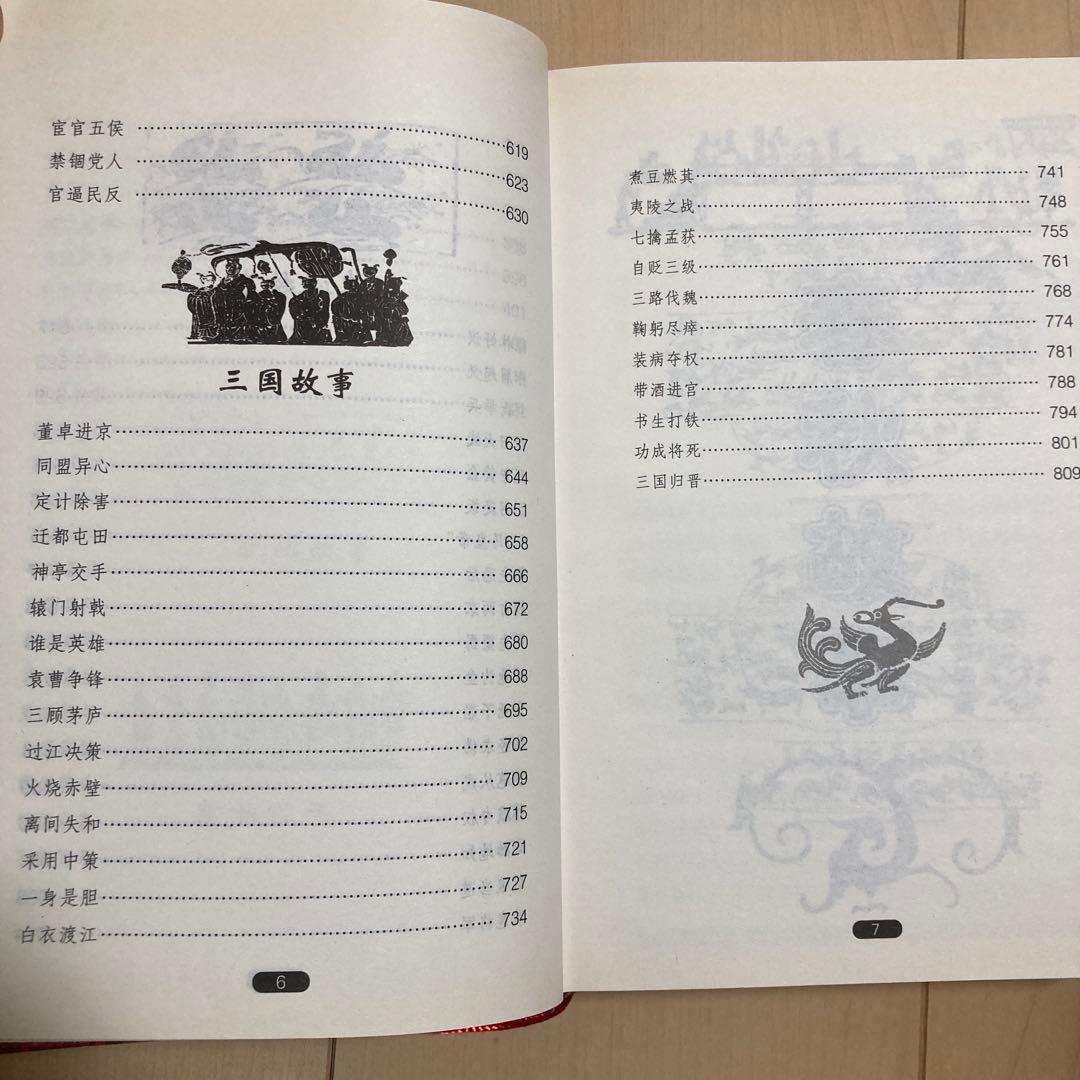 宦官五侯 ………… 619
禁锢党人 ………… 623
官逼民反 ………… 630
三国故事
董卓进京 ………… 637
同盟异心 ………… 644
定计除害 ………… 651
迁都屯田 ………… 658
神亭交手 ………… 666
辕门射戟 ………… 672
谁是英雄 ………… 680
袁曹争锋 ………… 688
三顾茅庐 ………… 695
过江决策 ………… 702
火烧赤壁 ………… 709
离间失和 ………… 715
采用中策 ………… 721
一身是胆 ………… 727
白衣渡江 ………… 734
6
煮豆燃萁 ………… 741
夷陵之战 ………… 748
七擒孟获 ………… 755
自贬三级 ………… 761
三路伐魏 ………… 768
鞠躬尽瘁 ………… 774
装病夺权 ………… 781
带酒进宫 ………… 788
书生打铁 ………… 794
功成将死 ………… 801
三国归晋 ………… 809
7